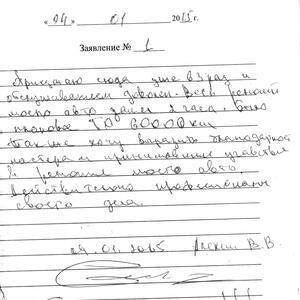 « 04 » 01 2015 г.
Заявление № 1
Приезжаю сюда уже 3 раз и
обслуживанием доволен. Весь ремонт
моего авто занял 2 часа. Было
плановое ТО 60000 км
Также хочу выразить благодарность
мастерам принимавшие участие
в ремонте моего авто.
Действительно профессионалы
своего дела.
04.01.2015 В.В.